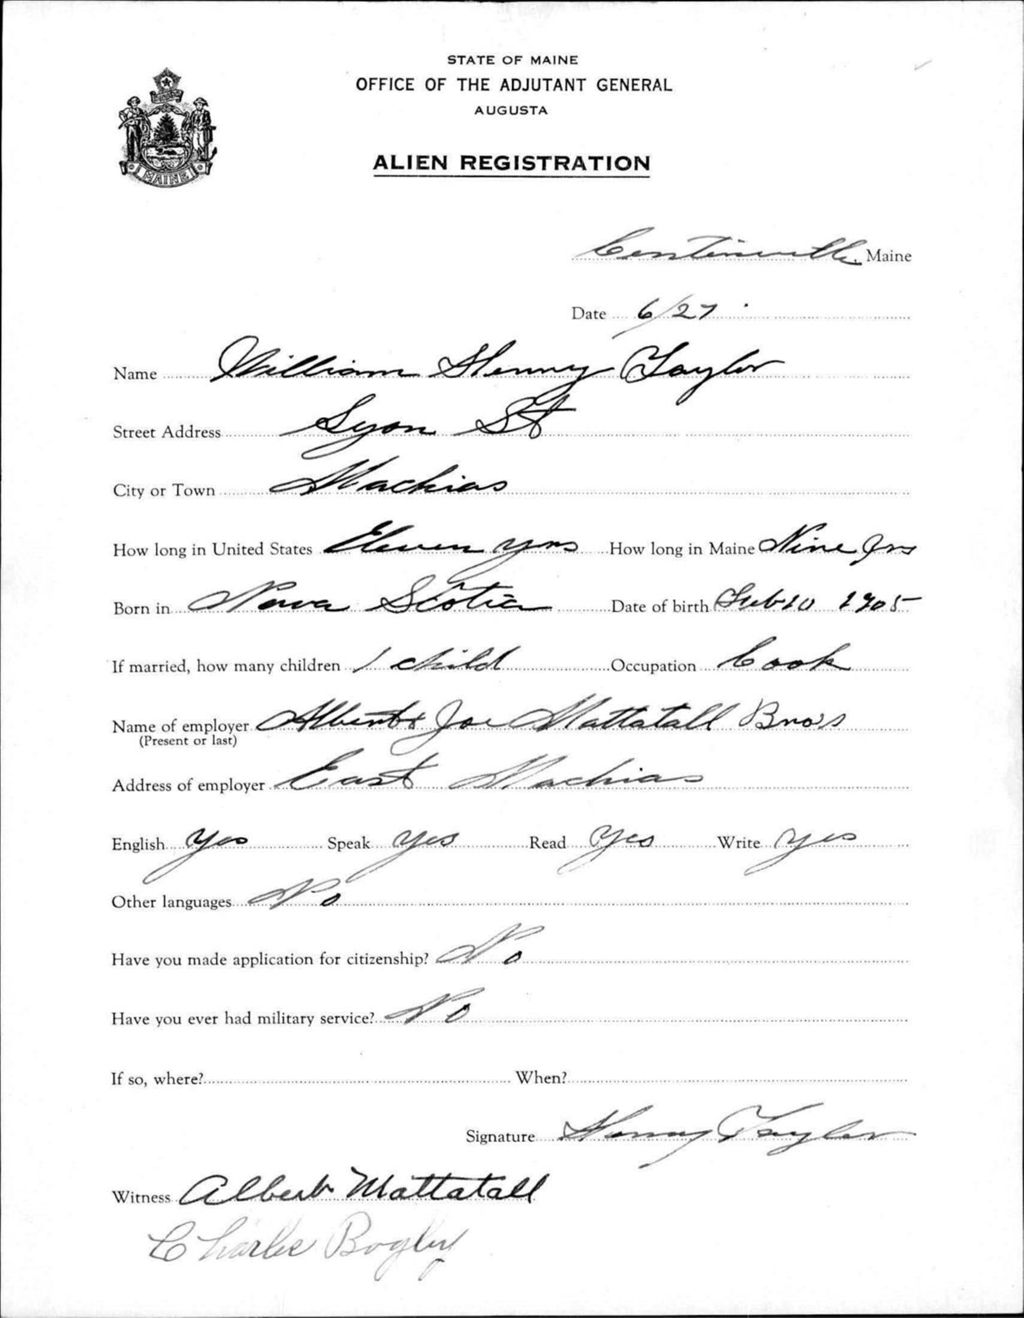 STATE OF MAINE
OFFICE OF THE ADJUTANT GENERAL
AUGUSTA
ALIEN REGISTRATION
MAINE
Centerville, Maine
Date 6/27
Name William Henry Taylor
Street Address Lyon St
City or Town Machias
How long in United States Eleven yrs How long in Maine Nine yrs
Born in Nova Scotia Date of birth Feb 10 1905
If married, how many children 1 child Occupation Cook
Name of employer Albert & Joe Mattatall Bros
(Present or last)
Address of employer East Machias
English yes Speak yes Read yes Write yes
Other languages No
Have you made application for citizenship? No
Have you ever had military service? No
If so, where? When?
Signature Henry Taylor
Witness Albert Mattatall
Charlie